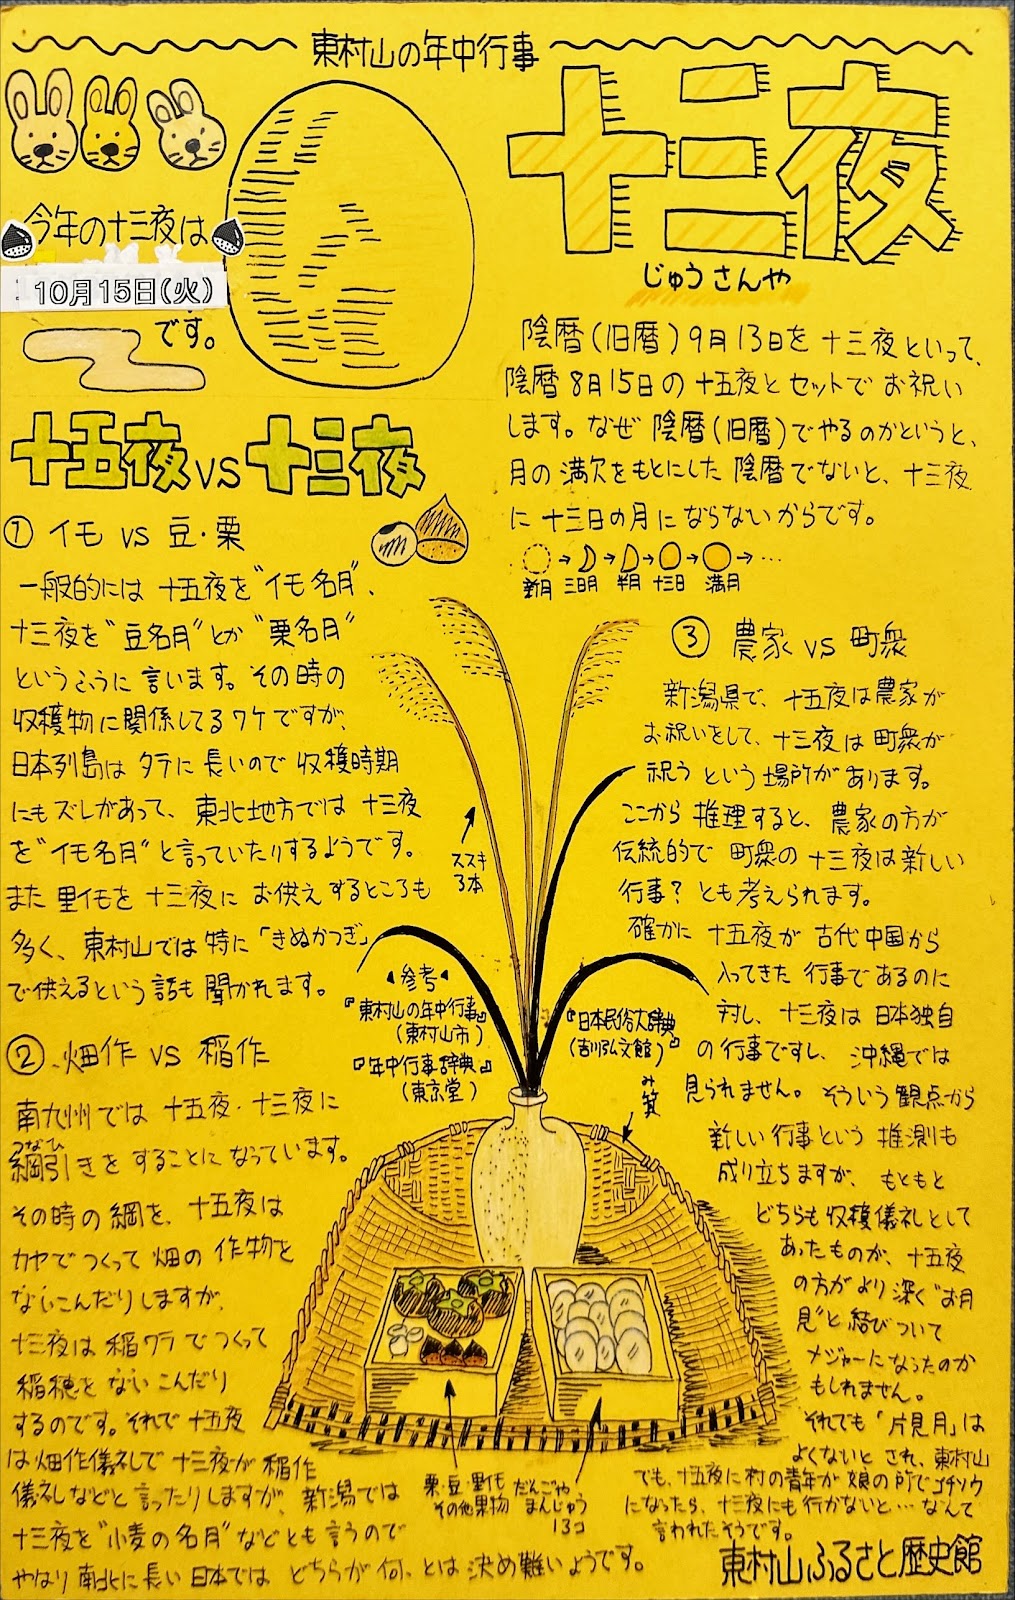 東村山の年中行事
十三夜
じゅうさんや
今年の十三夜は
10月15日(火)
です。
陰暦(旧暦)9月13日を十三夜といって、
陰暦8月15日の十五夜とセットでお祝い
します。なぜ陰暦(旧暦)でやるのかというと、
月の満欠をもとにした陰暦でないと、十三夜
に十三日の月にならないからです。
新月 三日月 半月 十三日 満月
十五夜 vs 十三夜
① イモ vs 豆・栗
一般的には十五夜を"イモ名月"、
十三夜を"豆名月"とか"栗名月"
というふうに言います。その時の
収穫物に関係してるワケですが、
日本列島はタテに長いので収穫時期
にもズレがあって、東北地方では十三夜
を"イモ名月"と言っていたりするようです。
また里イモを十三夜にお供えするところも
多く、東村山では特に「きぬかつぎ」
で供えるという話も聞かれます。
② 畑作 vs 稲作
南九州では十五夜・十三夜に
つなひ
綱引きをすることになっています。
その時の綱を、十五夜は
カヤでつくって畑の作物を
ないこんだりしますが、
十三夜は稲ワラでつくって
稲穂をないこんだり
するのです。それで十五夜
は畑作儀礼で十三夜が稲作
儀礼などと言ったりしますが、新潟では
十三夜を"小麦の名月"などとも言うので
やはり南北に長い日本ではどちらが何、とは決め難いようです。
③ 農家 vs 町衆
新潟県で、十五夜は農家が
お祝いをして、十三夜は町衆が
祝うという場所があります。
ここから推理すると、農家の方が
伝統的で町衆の十三夜は新しい
行事?とも考えられます。
確かに十五夜が古代中国から
入ってきた行事であるのに
対し、十三夜は日本独自
の行事ですし、沖縄では
見られません。そういう観点から
新しい行事という推測も
成り立ちますが、もともと
どちらも収穫儀礼として
あったものが、十五夜
の方がより深く"お月
見"と結びついて
メジャーになったのか
もしれません。
それでも「片見月」は
よくないとされ、東村山
でも、十五夜に村の青年が娘の所でゴチソウ
になったら、十三夜にも行かないと…なんて
言われたそうです。
ススキ
3本
参考
『東村山の年中行事』
(東村山市)
『年中行事辞典』
(東京堂)
『日本民俗大辞典』
(吉川弘文館)
み
箕
栗・豆・里イモ
その他果物
だんごや
まんじゅう
13コ
東村山ふるさと歴史館